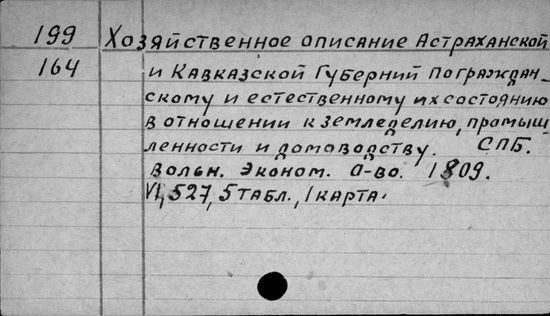 199 Хозяйственное описание Астраханской
164 и Кавказской Губерний по граждан-
скому и естественному их состоянию
в отношении к земледелию, промыш
ленности и домоводству. СПБ.
Вольн. Эконом. О-во. 1809.
VI, 527, 5 табл., 1 карта.